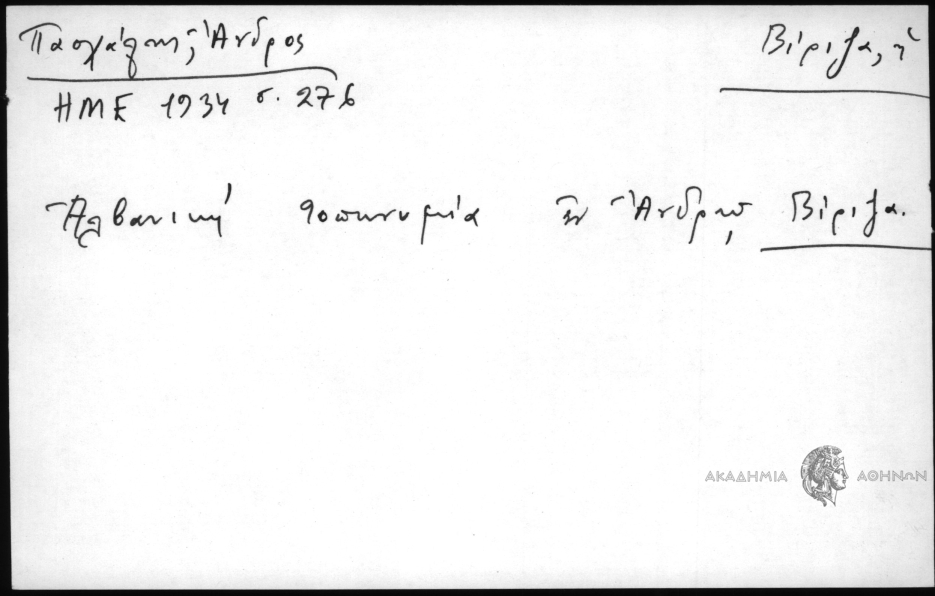 Πασχάλης, Ἄνδρος
Βίριζα, ἡ
ΗΜΕ 1934 σ. 276
Ἀλβανικὴ τοπωνυμία ἐν Ἄνδρῳ Βίριζα.
ΑΚΑΔΗΜΙΑ ΑΘΗΝΩΝ